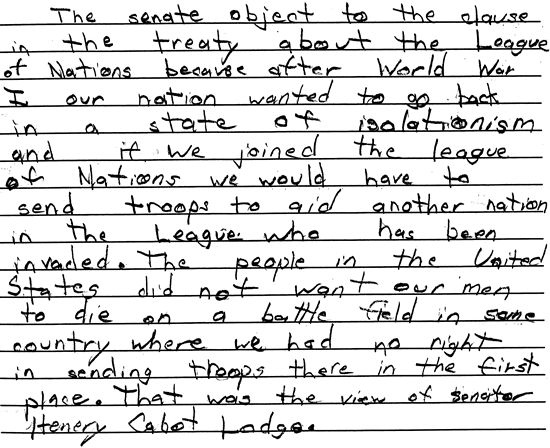 The senate object to the clause
in the treaty about the League
of Nations because after World War
I our nation wanted to go back
in a state of isolationism
and if we joined the league
of Nations we would have to
send troops to aid another nation
in the League who has been
invaded. The people in the United
States did not want our men
to die on a battle field in some
country where we had no right
in sending troops there in the first
place. That was the view of senator
Henery Cabot Lodge.